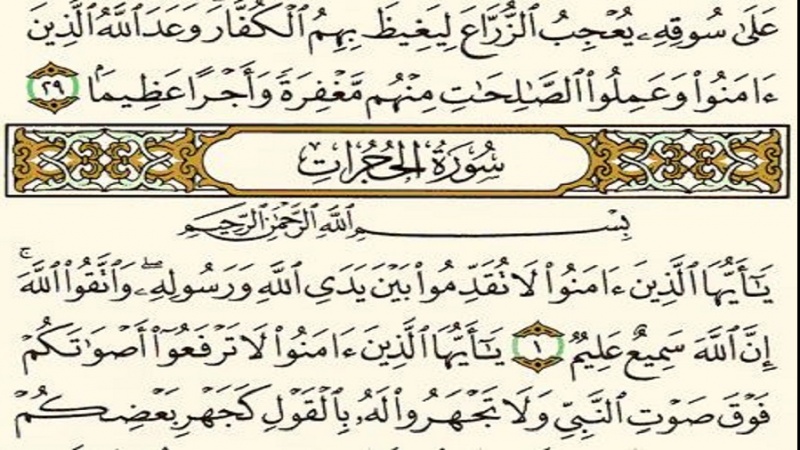 عَلَىٰ سُوقِهِۦ يُعْجِبُ ٱلزُّرَّاعَ لِيَغِيظَ بِهِمُ ٱلْكُفَّارَ ۗ وَعَدَ ٱللَّهُ ٱلَّذِينَ
ءَامَنُوا۟ وَعَمِلُوا۟ ٱلصَّـٰلِحَـٰتِ مِنْهُم مَّغْفِرَةً وَأَجْرًا عَظِيمًۢا ٢٩
سُورَةُ الحُجُرَاتِ
بِسْمِ ٱللَّهِ ٱلرَّحْمَـٰنِ ٱلرَّحِيمِ
يَـٰٓأَيُّهَا ٱلَّذِينَ ءَامَنُوا۟ لَا تُقَدِّمُوا۟ بَيْنَ يَدَىِ ٱللَّهِ وَرَسُولِهِۦ ۖ وَٱتَّقُوا۟ ٱللَّهَ ۚ
إِنَّ ٱللَّهَ سَمِيعٌ عَلِيمٌ ١ يَـٰٓأَيُّهَا ٱلَّذِينَ ءَامَنُوا۟ لَا تَرْفَعُوٓا۟ أَصْوَٰتَكُمْ
فَوْقَ صَوْتِ ٱلنَّبِىِّ وَلَا تَجْهَرُوا۟ لَهُۥ بِٱلْقَوْلِ كَجَهْرِ بَعْضِكُمْ